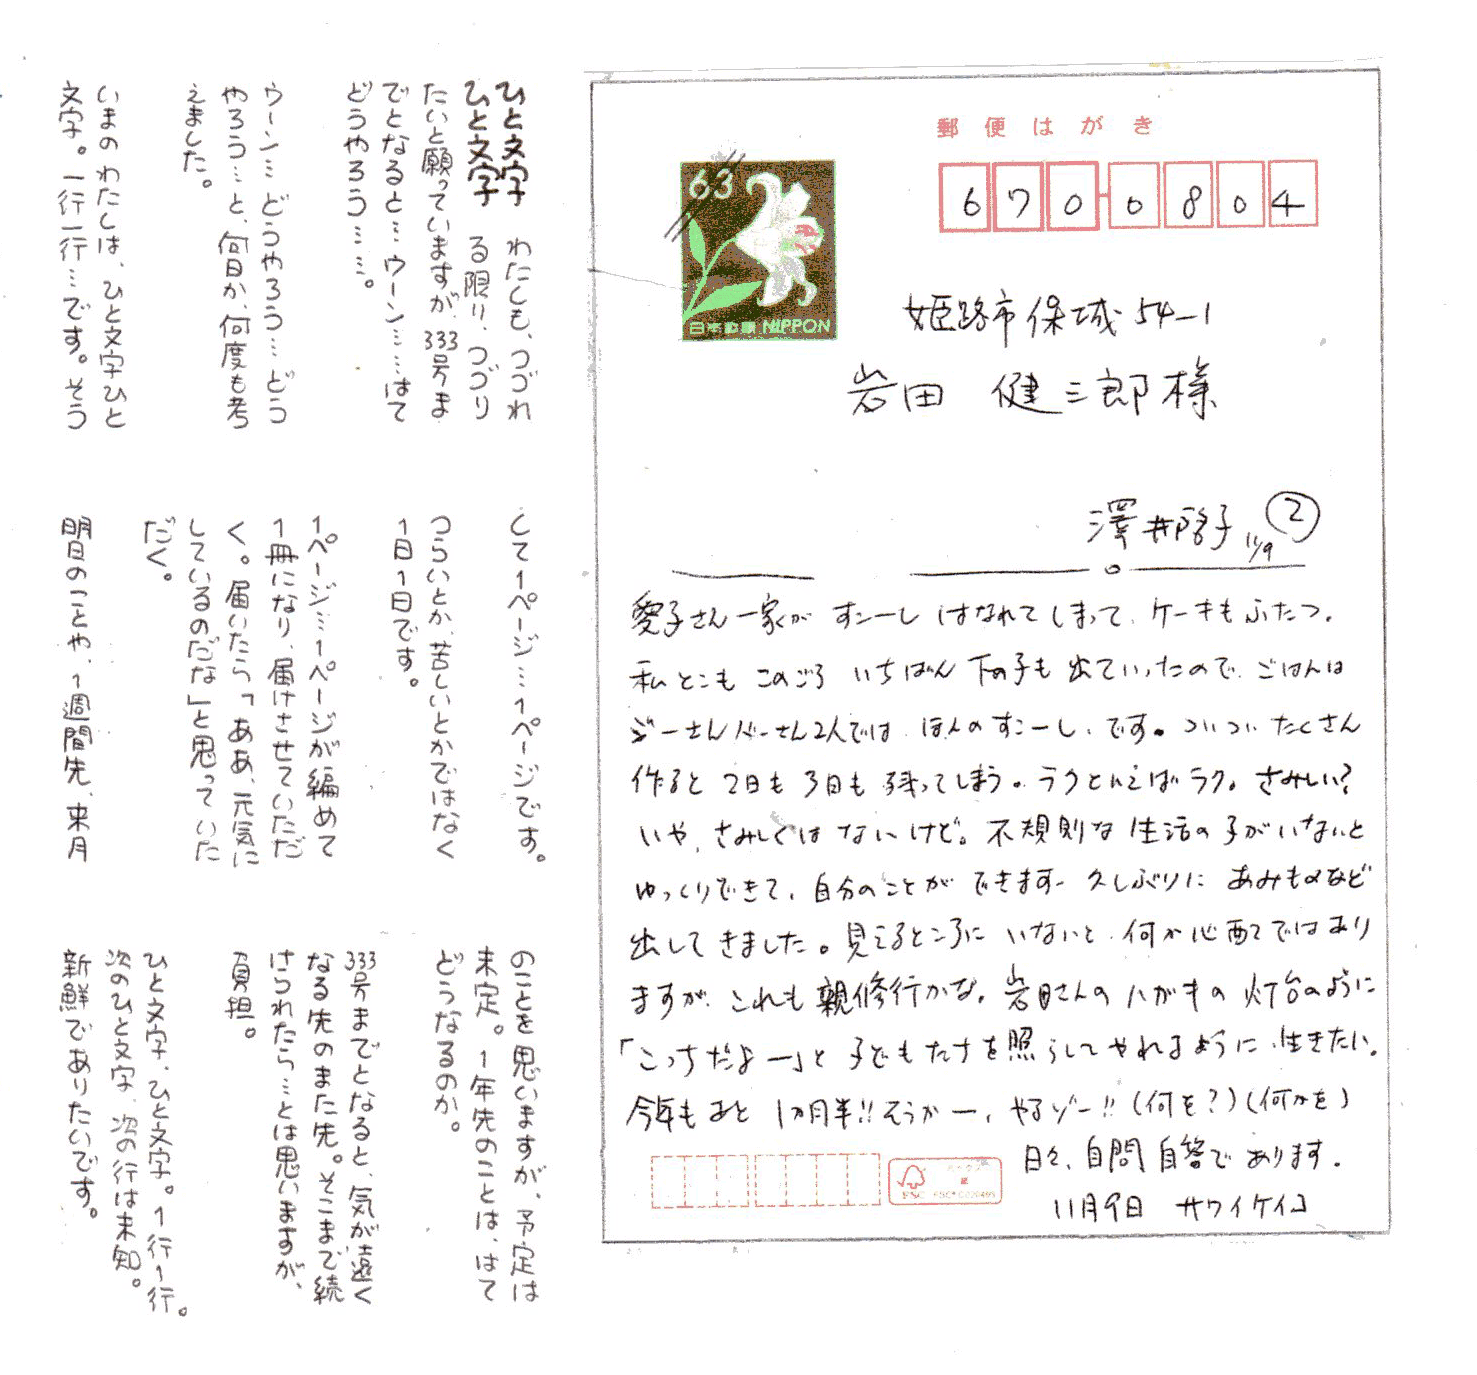 郵便はがき
670-0804
63
日本郵便 NIPPON
姫路市保城54-1
岩田 健三郎様
澤井啓子 11/9 ②
愛子さん一家が すこーし はなれてしまって、ケーキもふたつ。
私とこも このごろ いちばん下の子も 出ていったので、ごはんは
ジーさんバーさん2人では ほんのすこーし、です。ついつい たくさん
作ると 2日も 3日も 残ってしまう。ラクといえば ラク。さみしい?
いや、さみしくは ないけど。不規則な 生活の子が いないと
ゆっくりできて、自分のことが できます。久しぶりに あみものなど
出してきました。見えるところに いないと、何か心配ではあり
ますが、これも 親修行かな。岩田さんの ハガキの 灯台のように
「こっちだよー」と 子どもたちを照らしてやれるように、生きたい。
今年もあと 1カ月半!!そうかー、やるゾー!!(何を?)(何かを)
日々、自問自答であります。
11月9日 サワイケイコ
ひと文字
ひと文字
わたしも、つづれ
る限り、つづり
たいと願っていますが、333号ま
でとなると…ウーン……はて
どうやろう……。
ウーン…どうやろう…どう
やろう…と、何日か、何度も考
えました。
いまのわたしは、ひと文字ひと
文字。一行一行…です。そう
して1ページ…1ページです。
つらいとか、苦しいとかではなく
1日1日です。
1ページ…1ページが編めて
1冊になり、届けさせていただ
く。届いたら「ああ、元気に
しているのだな」と思っていた
だく。
明日のことや、1週間先、来月
のことを思いますが、予定は
未定。1年先のことは、はて
どうなるのか。
333号までとなると、気が遠く
なる先のまた先。そこまで続
けられたら…とは思いますが、
負担。
ひと文字、ひと文字。1行1行。
次のひと文字、次の行は未知。
新鮮でありたいです。
FSC